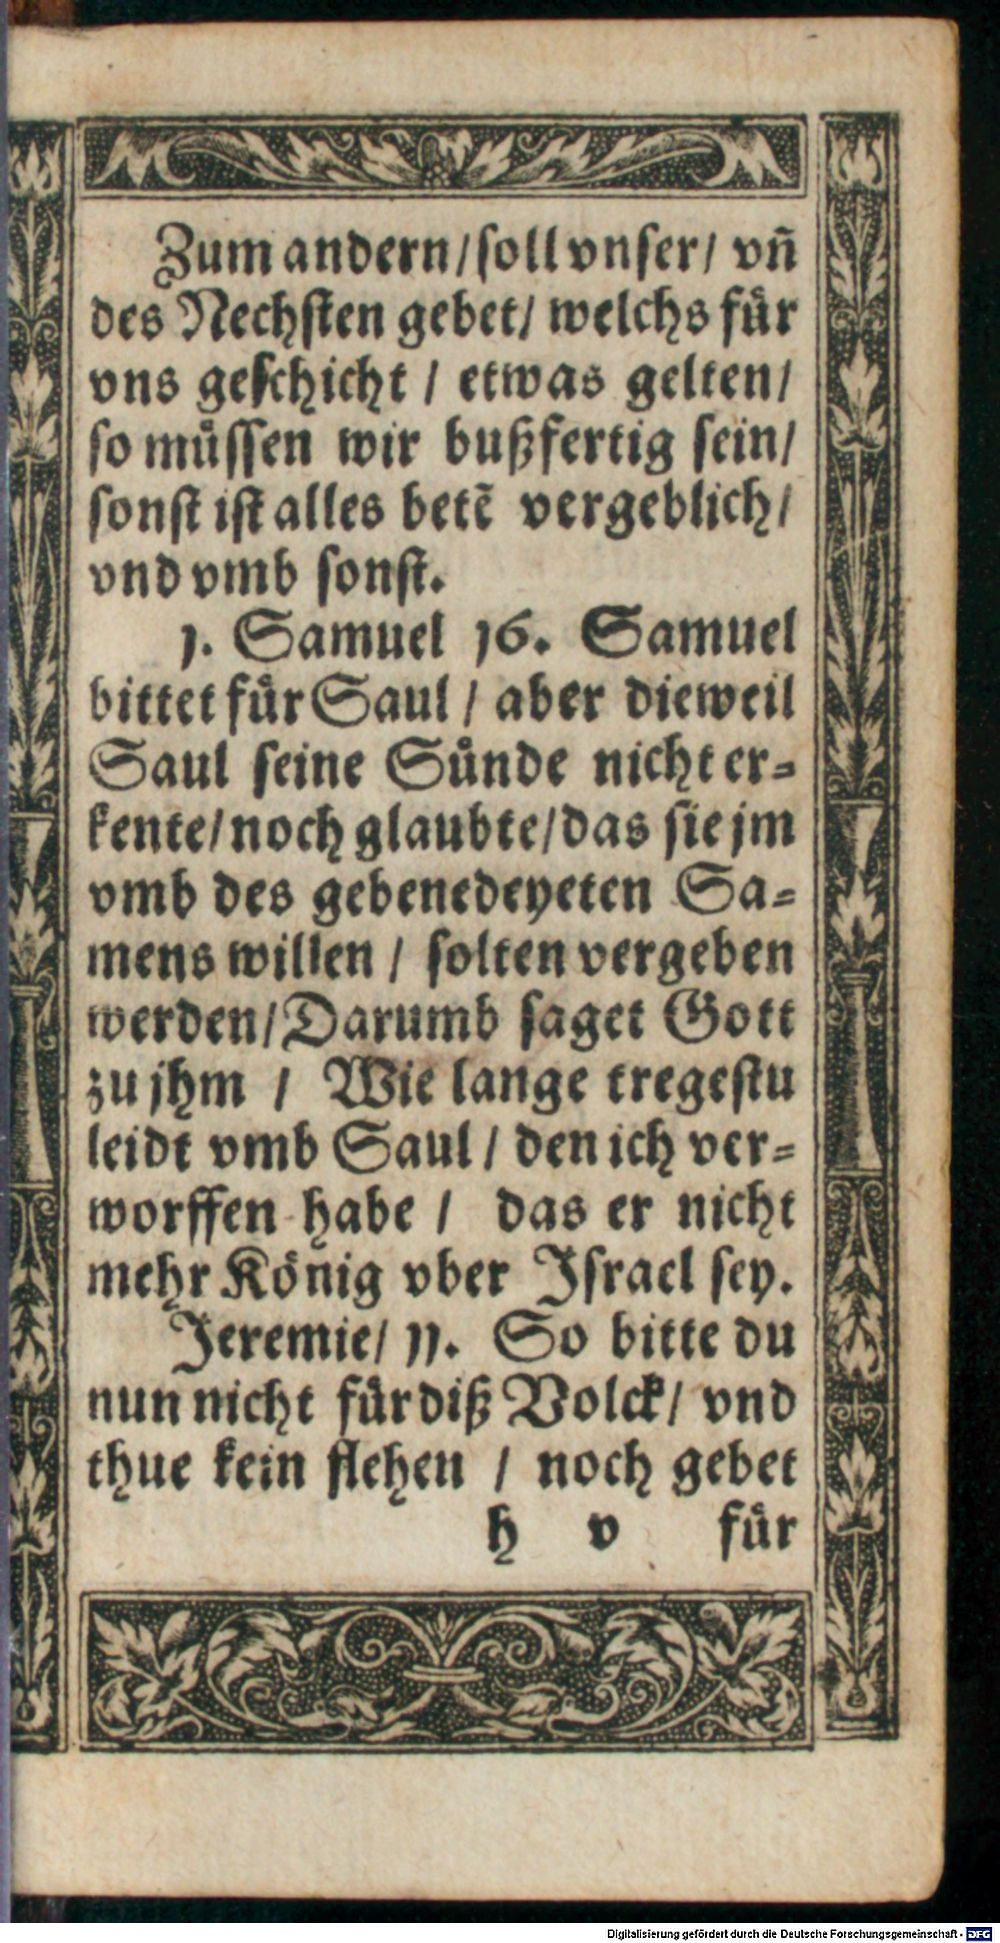 Zum andern/ soll vnser/ vn̄
des Nechsten gebet/ welchs fuͤr
vns geschicht / etwas gelten/
so muͤssen wir bußfertig sein/
sonst ist alles betē vergeblich/
vnd vmb sonst.
1. Samuel 16. Samuel
bittet fuͤr Saul / aber dieweil
Saul seine Suͤnde nicht er=
kente/ noch glaubte/ das sie jm
vmb des gebenedeyeten Sa=
mens willen / solten vergeben
werden/ Darumb saget Gott
zu jhm / Wie lange tregestu
leidt vmb Saul / den ich ver=
worffen habe / das er nicht
mehr Koͤnig vber Israel sey.
Jeremie/ 11. So bitte du
nun nicht fuͤr diß Volck/ vnd
thue kein flehen / noch gebet
h v fuͤr
Digitalisierung gefördert durch die Deutsche Forschungsgemeinschaft - DFG